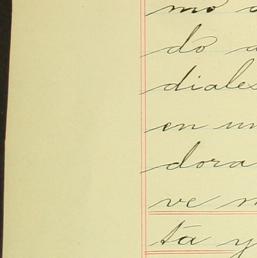 mo
do a
diales
en un
dora
ve
ta y